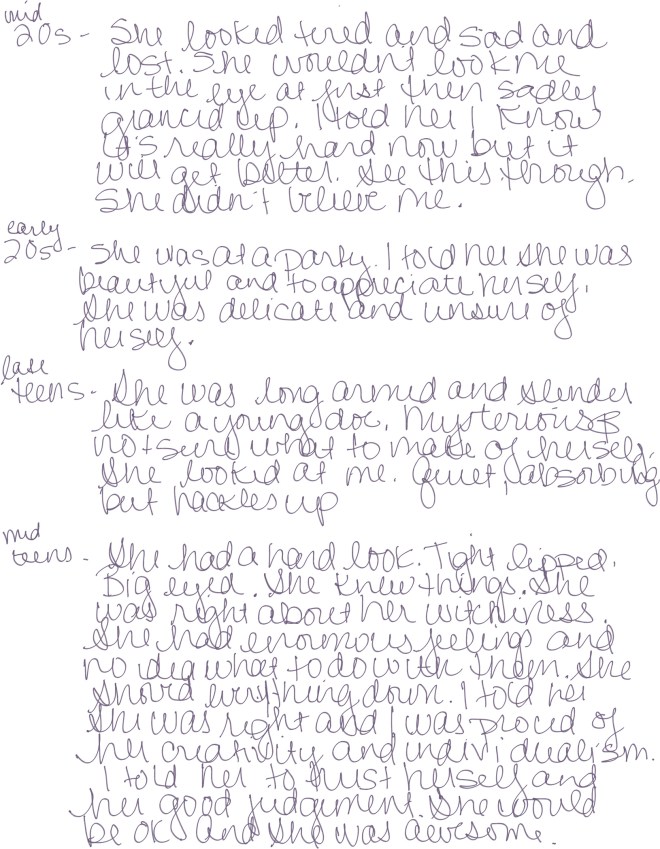 mid
20s - She looked tired and sad and
lost. She wouldn't look me
in the eye at first then sadly
glanced up. I told her I know
it's really hard now but it
will get better. See this through.
She didn't believe me.
early
20s - She was at a party. I told her she was
beautiful and to appreciate herself.
She was delicate and unsure of
herself.
late
teens - She was long armed and slender
like a young doe. Mysterious &
not sure what to make of herself.
She looked at me. Quiet, absorbing
but hackles up
mid
teens - She had a hard look. Tight lipped.
Big eyed. She knew things. She
was right about her witchiness.
She had enormous feelings and
no idea what to do with them. She
shoved everything down. I told her
she was right and I was proud of
her creativity and individualism.
I told her to trust herself and
her good judgement. She would
be OK and she was awesome.